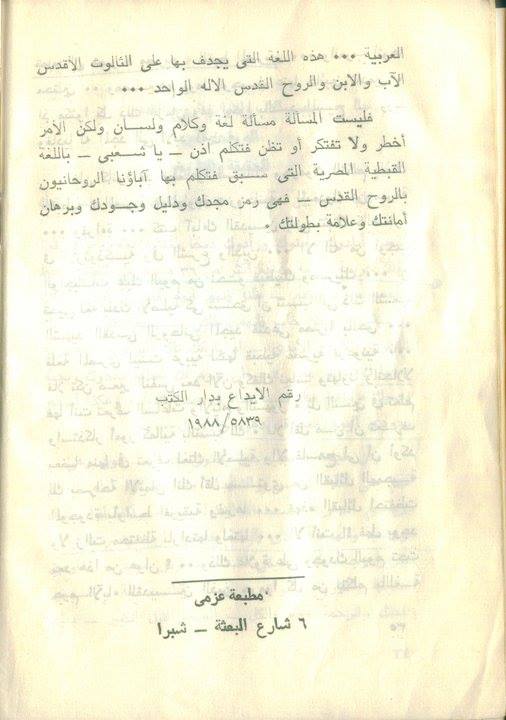 العربية ٠٠٠ هذه اللغة التى يجدف بها على الثالوث الأقدس
الآب والابن والروح القدس الاله الواحد ٠٠٠
فليست المسألة مسألة لغة وكلام ولسان ولكن الأمر
أخطر ولا تفتكر أو تظن فتكلم اذن ــ يا شعبى ــ باللغة
القبطية المصرية التى سبق فتكلم بها آباؤنا الروحانيون
بالروح القدس ــ فهى رمز مجدك ودليل وجودك وبرهان
أمانتك وعلامة بطولتك ٠
رقم الايداع بدار الكتب
١٩٨٨/٥٨٣٩
مطبعة عزمى
٦ شارع البعثة ــ شبرا